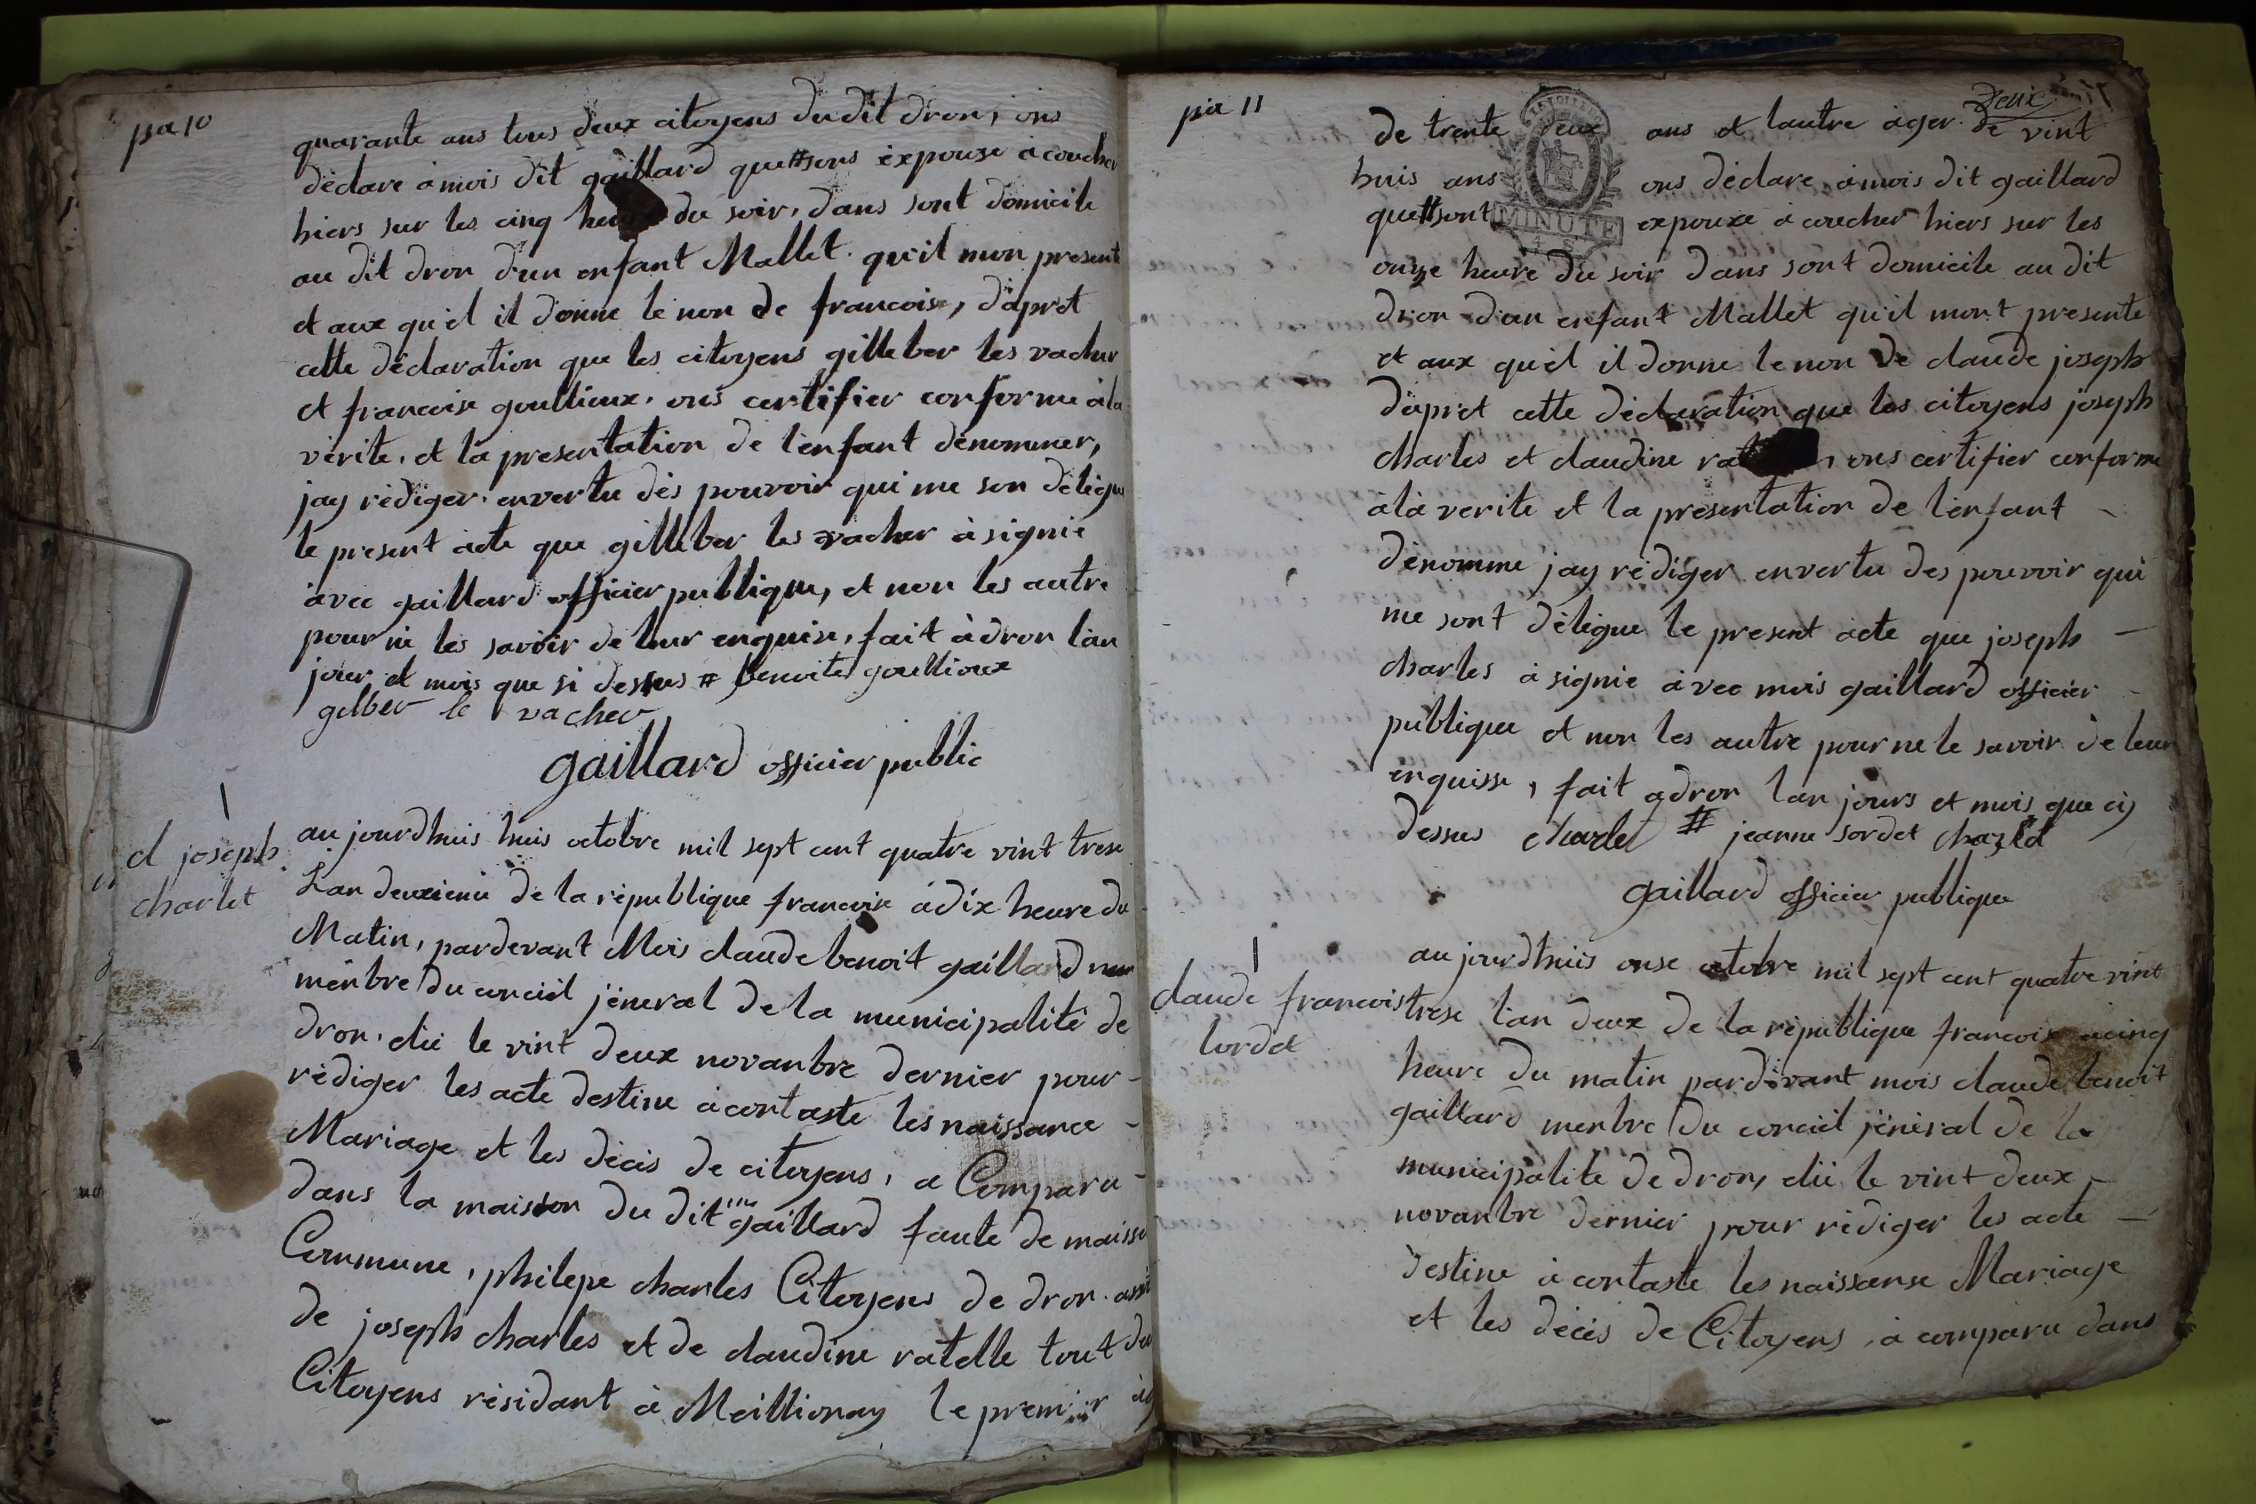 pa 10
quarante ans tous deux citoyens dudit dron, ons
déclare a mois dit gaillard que # sons éxpouze a coucher
hiers sur les cinq du soir, dans sont domicile
au dit dron d'un enfant Mallet qu'il mon presente
et aux quel il donne le non de francoise, dapret
cette déclaration que les citoyens gilleber les vacher
et francoise goullioux, ons certifier conforme a la
vérite, et la presentation de lenfant dénommer,
jay rédiger envertu dés pouvoir qui me son délégue
le present acte que gilleber les vacher a signié
avec gaillard officier publique, et non les autre
pour ne les savoir de leur enquise, fait a dron lan
jour et mois que si dessus # benoite goullioux
gilber le vacher
gaillard officier public
cl joseph
charlet
aujourdhuis huis octobre mil sept cent quatre vint trese
Lan deuxiemé de la république francoise a dix heure du
Matin, pardevant Mois claude benoit gaillard
ménbre du conciel jéneral de la municipalité de
dron, elü le vint deux novanbre dernier pour -
rédiger les acte destine a contaste les naissance -
Mariage et les décis de citoyens, a Comparu -
dans la maison du dit gaillard faute de maison
Commune, philepe charles Citoyens de dron
de joseph charles et de claudine ratelle tout
Citoyens résidant a Meillionay le premier
pa 11
Deux
de trente deux ans et lautre ager de vint
huis ans ons déclare a mois dit gaillard
que # sont MINUTE expouze a coucher hiers sur les
onze heure du soir dans sont domicile au dit
dron d'un enfant Mallet qu'il mont presente
et aux quel il donne le non de claude joseph
dapret cette déclaration que les citoyens joseph
charles et claudine , ons certifier conforme
a la verite et la présentation de lénfant -
dénomme jay rédiger envertu des pouvoir qui
me sont délégue le present acte que joseph -
charles a signié avec mois gaillard officier -
publique et non les autre pour ne le savoir de leur
enquisse, fait a dron lan jours et mois que ci
dessus charlet # jeanne sordet charlet
gaillard officier publique
claude francois
lordet
aujourdhuis onse octobre mil sept cent quatre vint
trese l'an deux de la république francoise a cinq
heure du matin pardevant mois claude benoit
gaillard menbre du conciel jénéral de la
municipalite de dron, elü le vint deux -
novanbre dernier pour rédiger les acte -
destine a contaste les naissanse Mariage
et les décés de Citoyens, a comparu dans